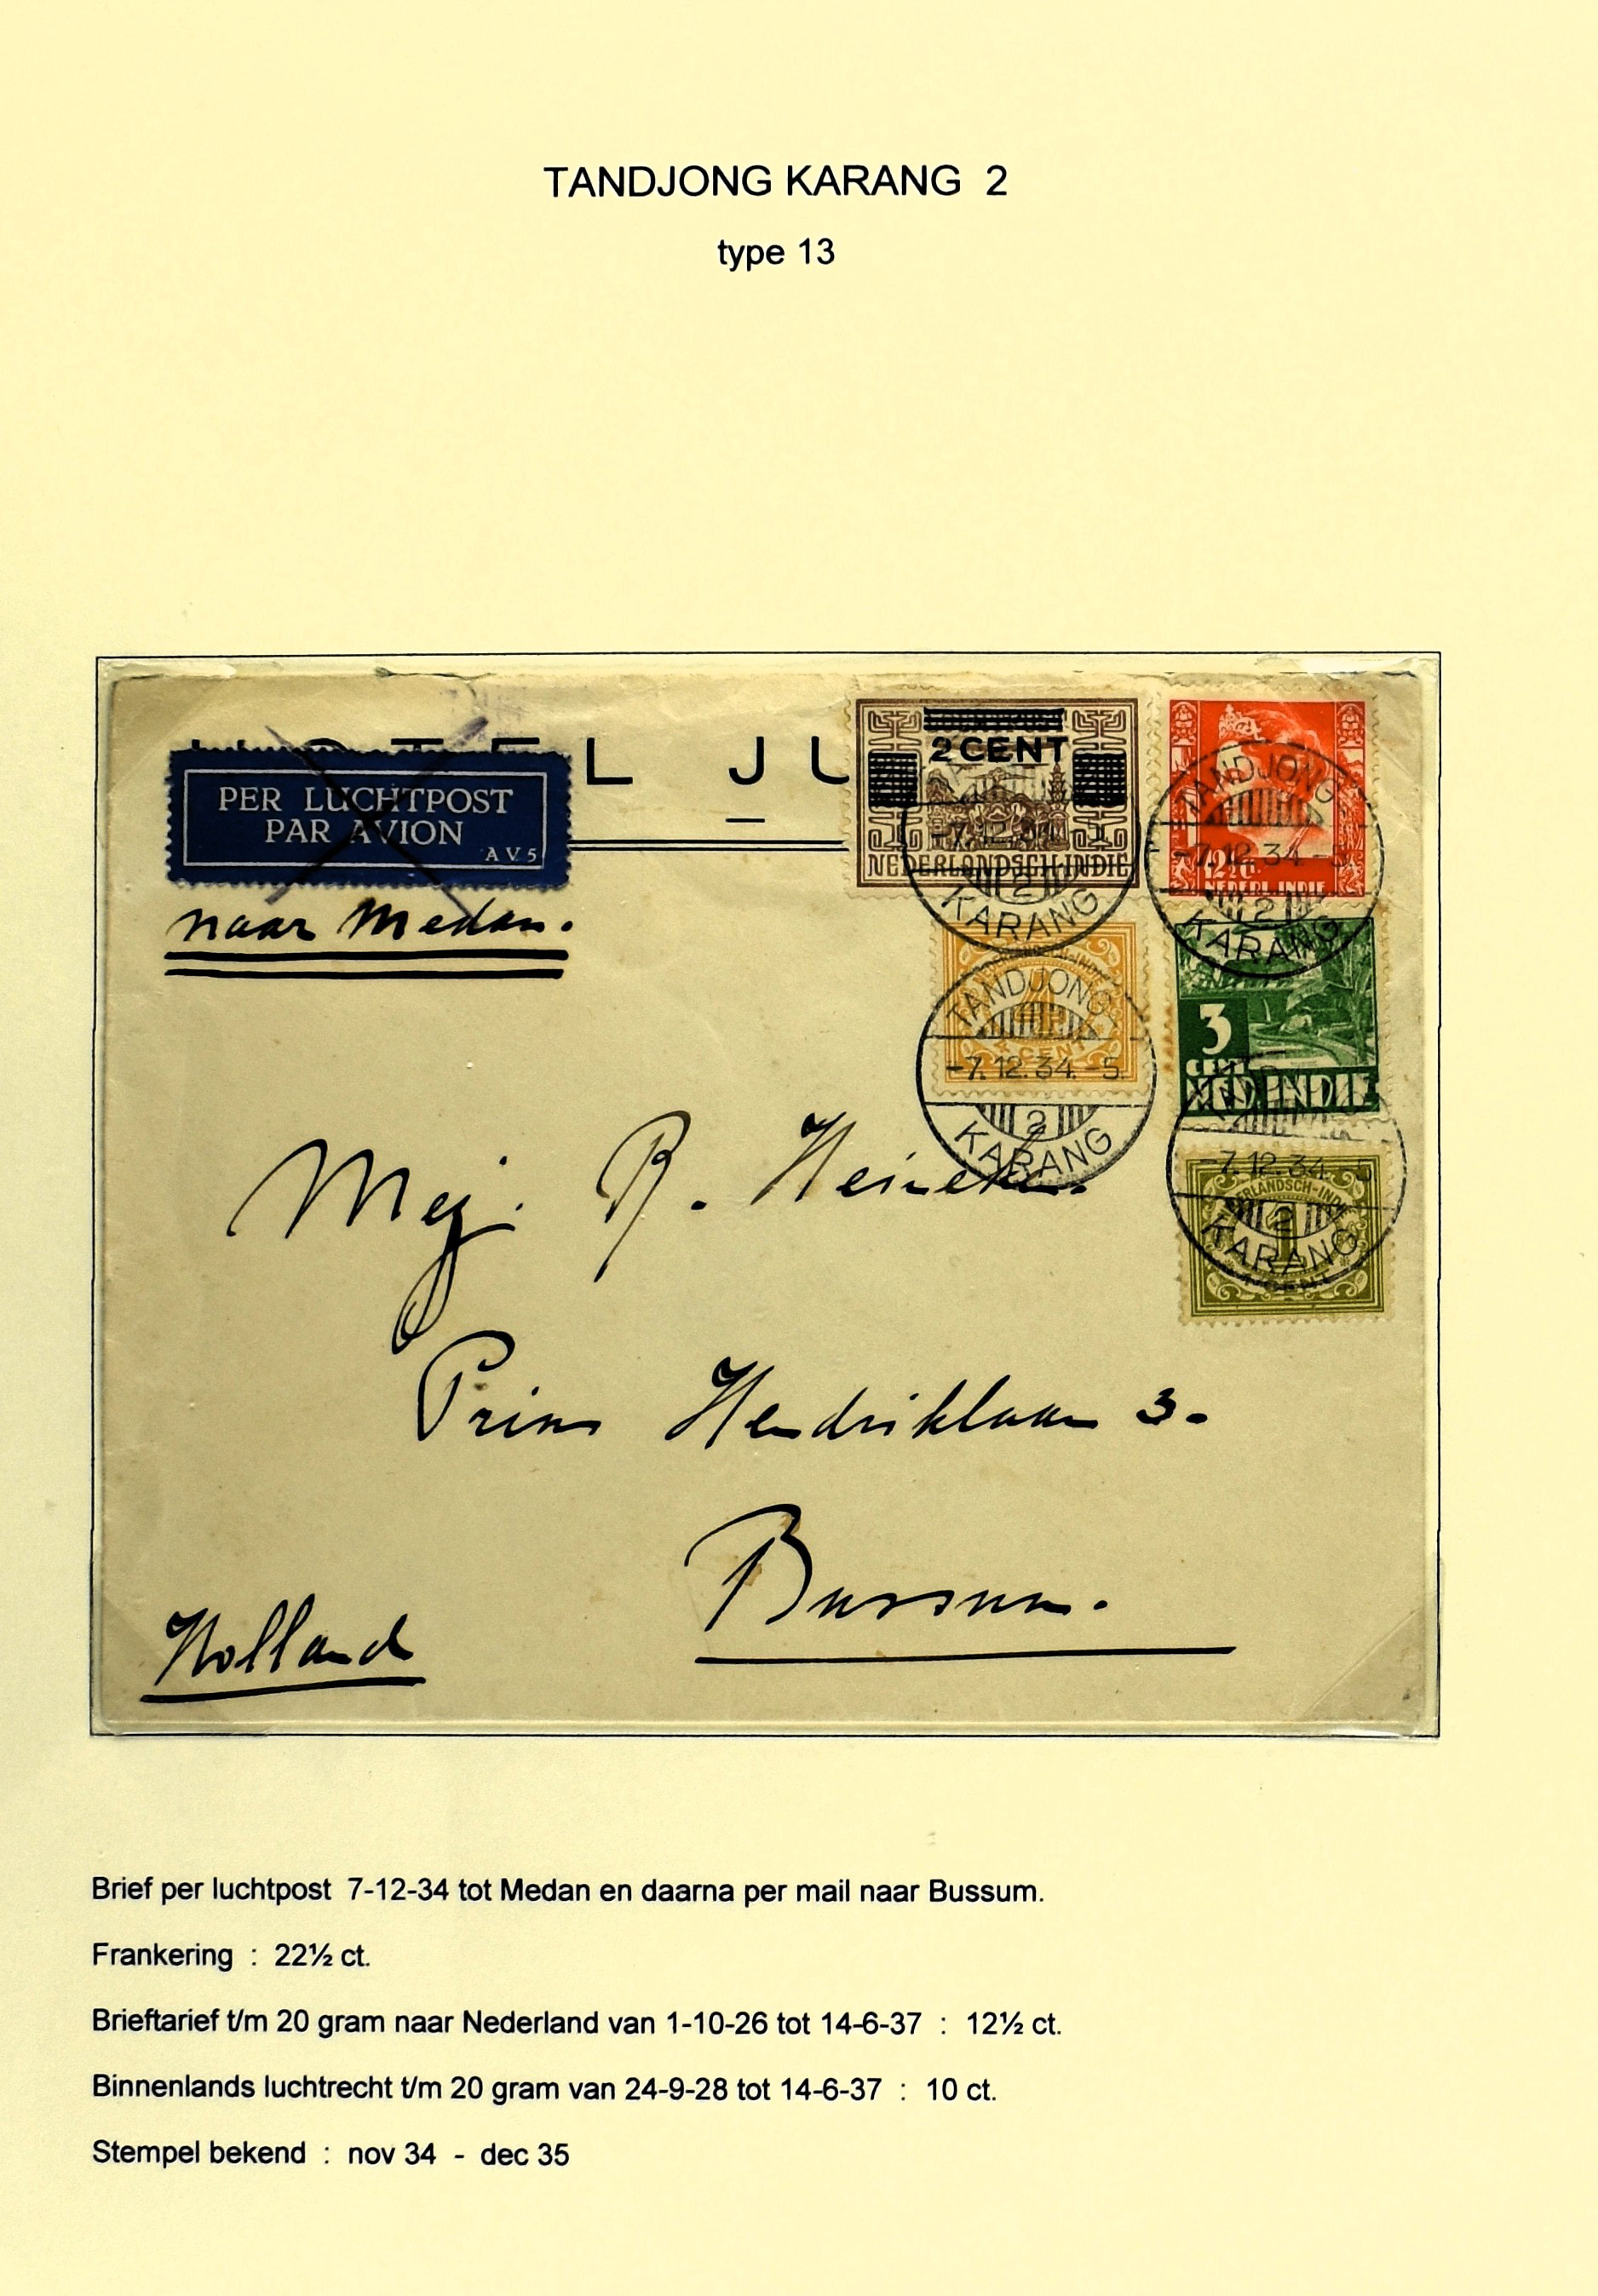 TANDJONG KARANG 2
type 13
OTEL JU
PER LUCHTPOST
PAR AVION
AV5
naar Medan.
2 CENT
NEDERLANDSCH-INDIE
-7.12.34.-5.
2
KARANG
TANDJONG
-7.12.34.-5.
2
KARANG
12½ C.
NEDERL. INDIE
TANDJONG
4
CENT
-7.12.34.-5.
2
KARANG
3
CENT
NED. INDIE
-7.12.34.
NEDERLANDSCH-INDIE
1
2
KARANG
CENT
Mej. R. Heineken.
Prins Hendriklaan 3.
Bussum.
Holland
Brief per luchtpost 7-12-34 tot Medan en daarna per mail naar Bussum.
Frankering : 22½ ct.
Brieftarief t/m 20 gram naar Nederland van 1-10-26 tot 14-6-37 : 12½ ct.
Binnenlands luchtrecht t/m 20 gram van 24-9-28 tot 14-6-37 : 10 ct.
Stempel bekend : nov 34 - dec 35